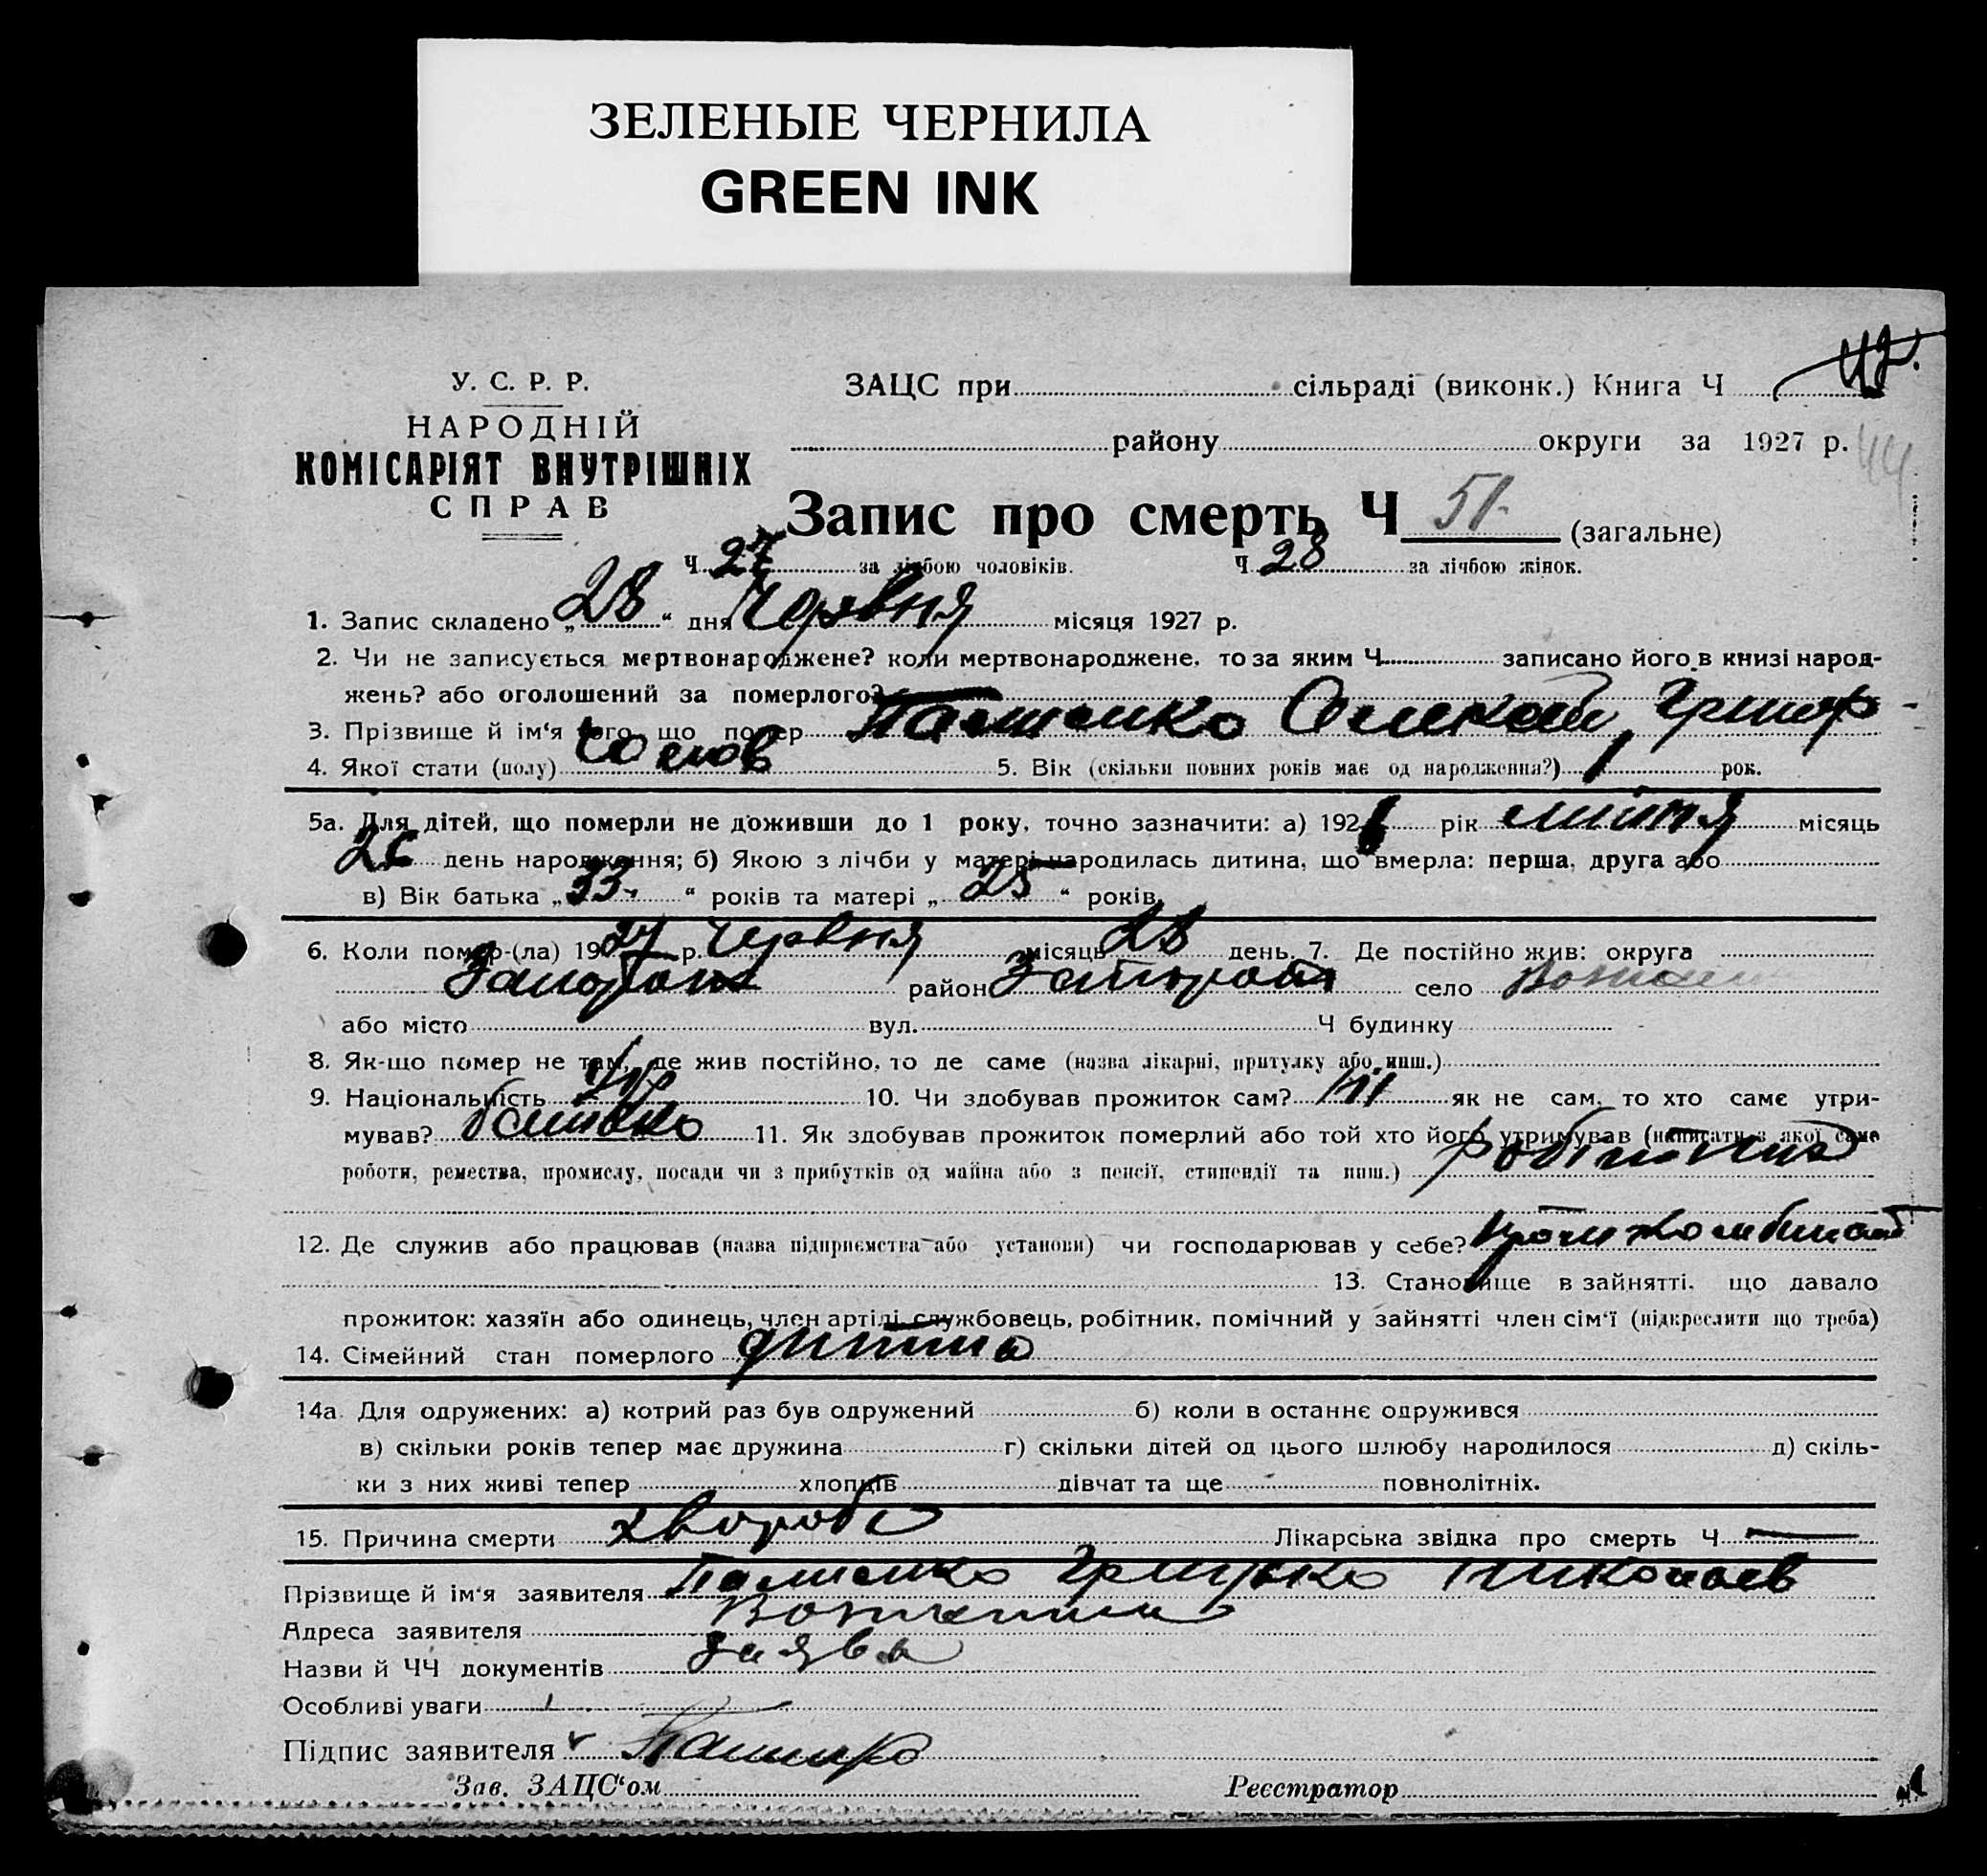 ЗЕЛЕНЫЕ ЧЕРНИЛА
GREEN INK
У. С. Р. Р.
НАРОДНІЙ
КОМІСАРІЯТ ВНУТРІШНІХ
СПРАВ
ЗАЦС при сільраді (виконк.) Книга Ч
району округи за 1927 р. 44
Запис про смерть Ч 51. (загальне)
Ч 27 за лічбою чоловіків. Ч 28 за лічбою жінок.
1. Запис складено „28“ дня Червня місяця 1927 р.
2. Чи не записується мертвонароджене? коли мертвонароджене, то за яким Ч. записано його в книзі народ-
жень? або оголошений за померлого?
3. Прізвище й ім'я того, що помер
4. Якої стати (полу) 5. Вік (скільки повних років має од народження?) 1 рок.
5а. Для дітей, що померли не доживши до 1 року, точно зазначити: а) 1926 рік липня місяць
день народження; б) Якою з лічби у матері народилась дитина, що вмерла: перша, друга або
в) Вік батька „33“ років та матері „25“ років.
6. Коли помер-(ла) 1927 р. Червня місяць 28 день. 7. Де постійно жив: округа
район село
або місто вул. Ч будинку
8. Як-що помер не там, де жив постійно, то де саме (назва лікарні, притулку або инш.)
9. Національність Укр 10. Чи здобував прожиток сам? ні як не сам, то хто саме утри-
мував? батько 11. Як здобував прожиток померлий або той хто його утримував (написати з якої саме
роботи, ремества, промислу, посади чи з прибутків од майна або з пенсії, стипендії та инш.) робітник
12. Де служив або працював (назва підприємства або установи) чи господарював у себе?
13. Становище в зайнятті, що давало
прожиток: хазяїн або одинець, член артілі, службовець, робітник, помічний у зайнятті член сім'ї (підкреслити що треба)
14. Сімейний стан померлого дитина
14а. Для одружених: а) котрий раз був одружений б) коли в останнє одружився
в) скільки років тепер має дружина г) скільки дітей од цього шлюбу народилося д) скіль-
ки з них живі тепер хлопців дівчат та ще повнолітніх.
15. Причина смерти хвороба Лікарська звідка про смерть Ч
Прізвище й ім'я заявителя Грицько Николаев
Адреса заявителя
Назви й ЧЧ документів заява
Особливі уваги
Підпис заявителя
Зав. ЗАЦС'ом Реєстратор